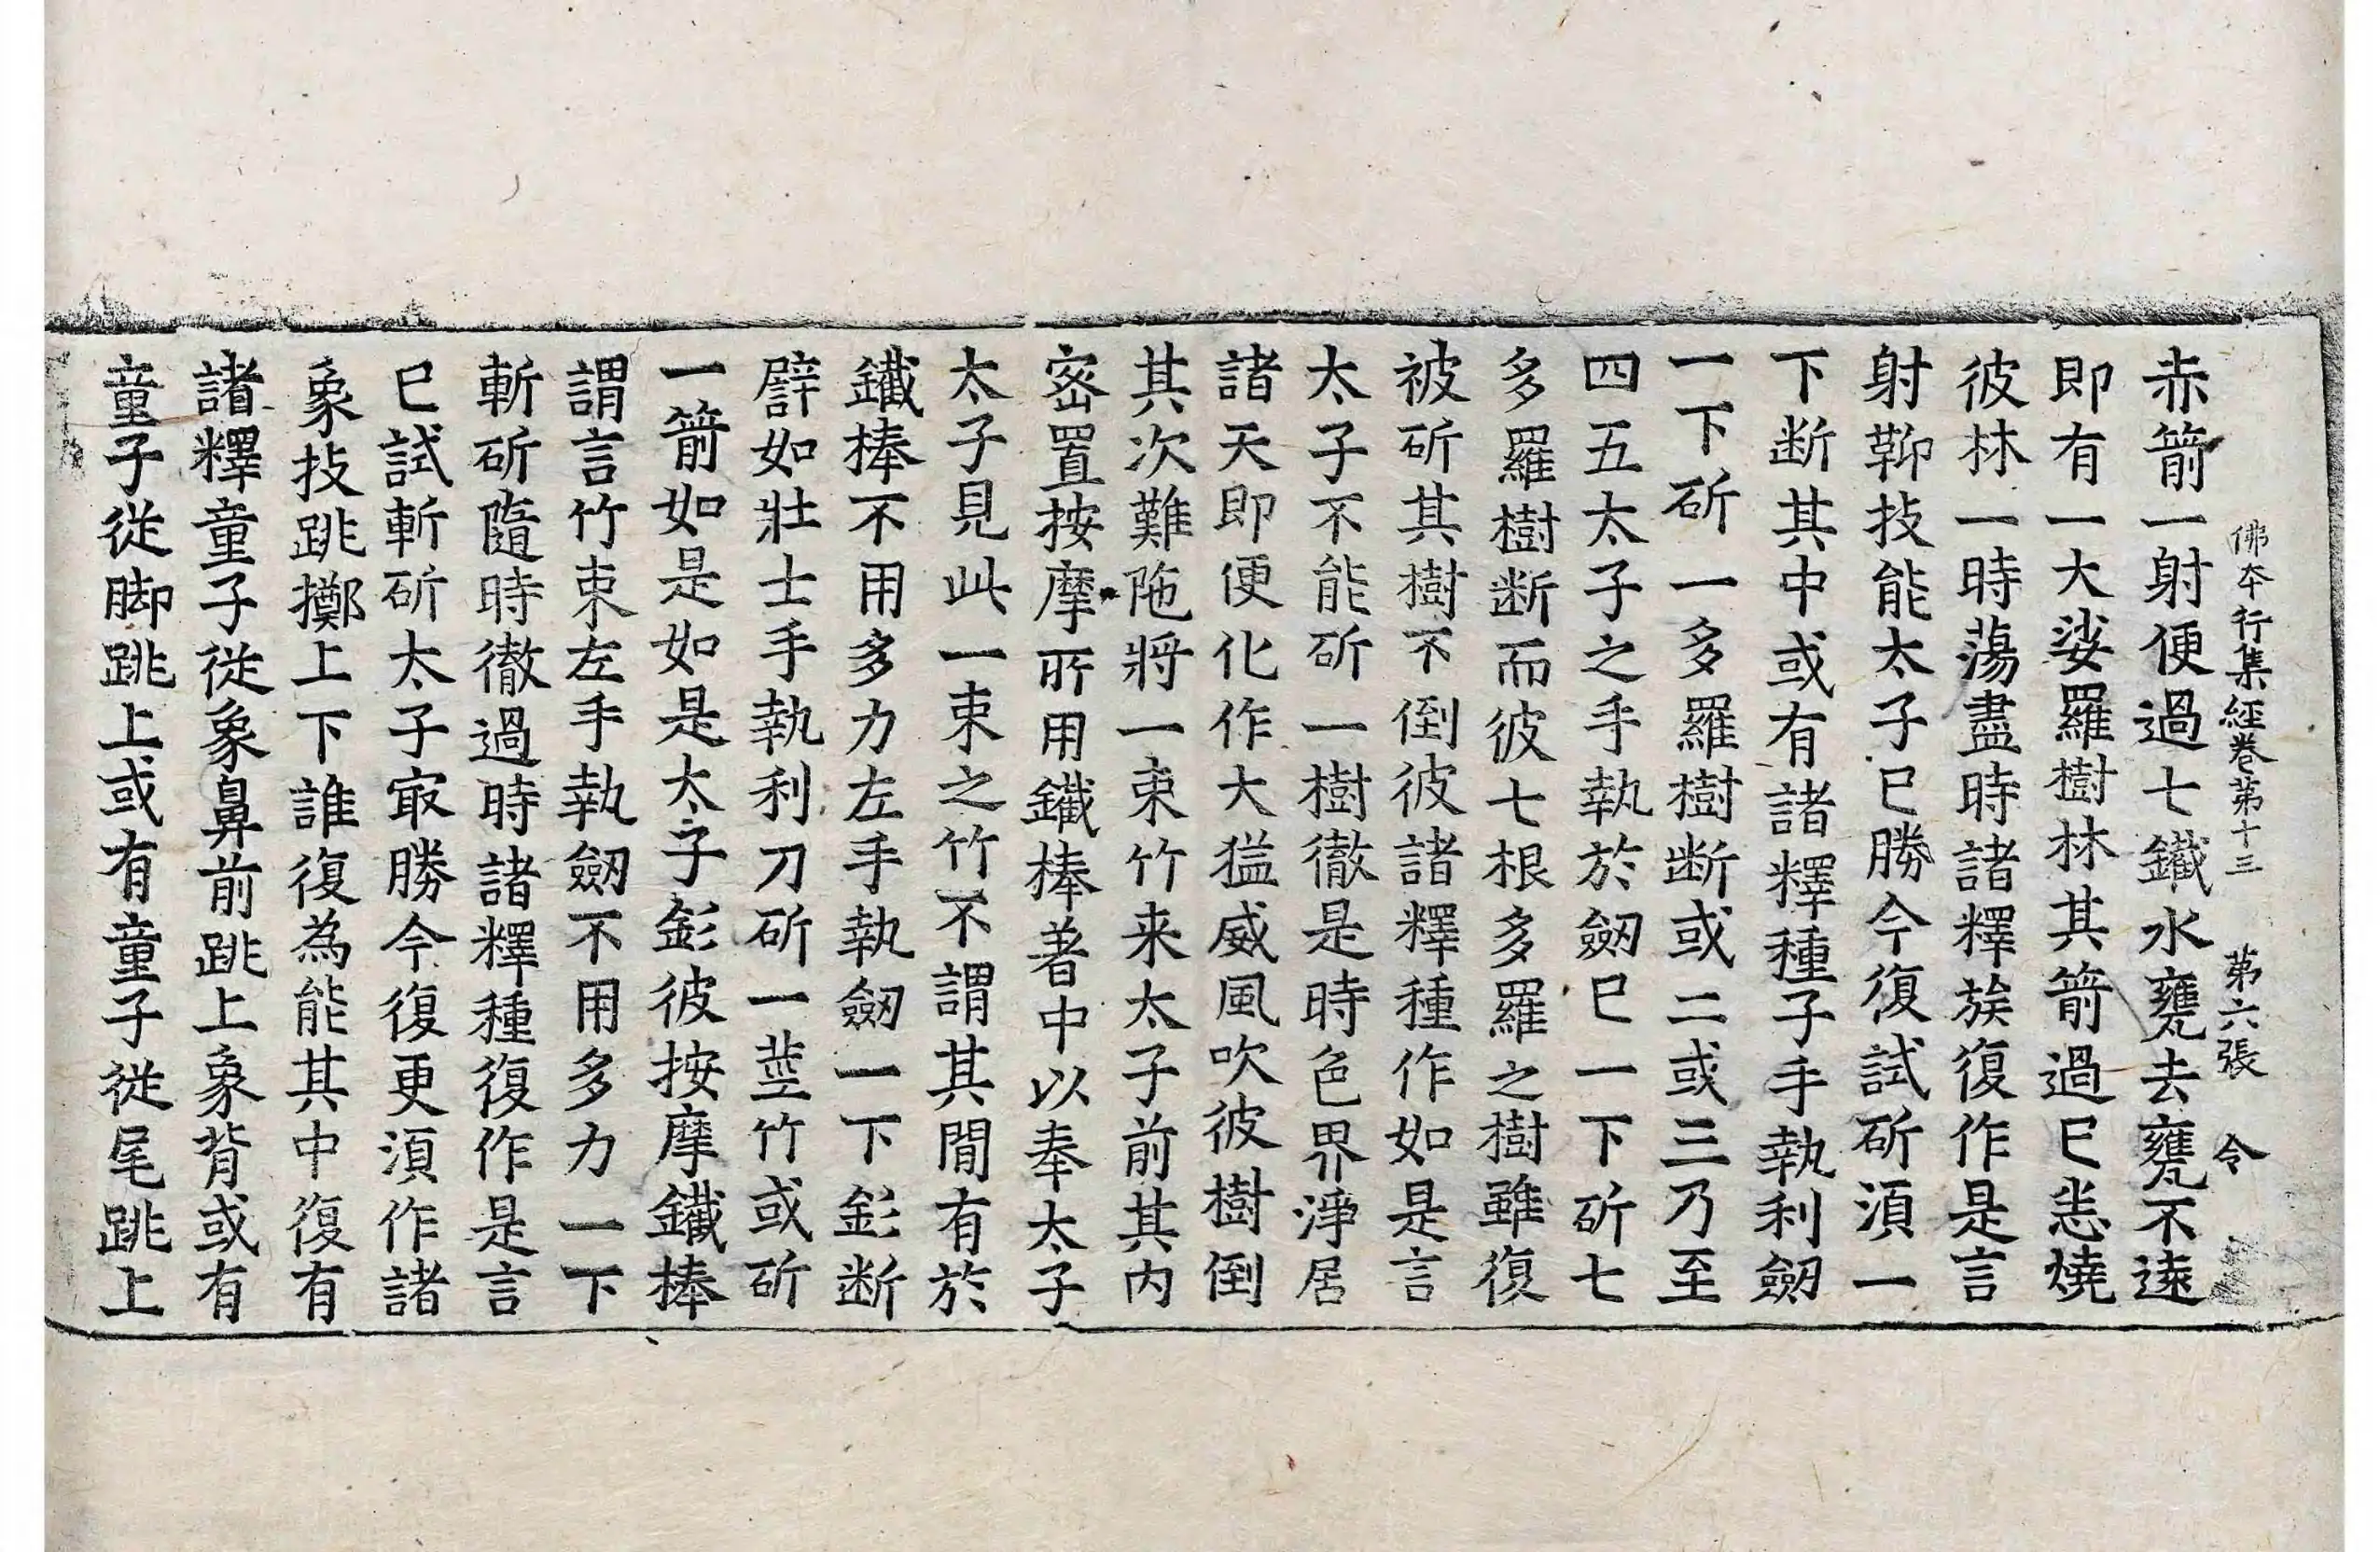 佛本行集經卷第十三 第六張 令
赤箭一射便過七鐵水甕去甕不遠
即有一大娑羅樹林其箭過已恙燒
彼林一時蕩盡時諸釋族復作是言
射䩕技能太子已勝今復試斫湏一
下断其中或有諸釋種子手執利劒
一下斫一多羅樹断或二或三乃至
四五太子之手執於劒已一下斫七
多羅樹断而彼七根多羅之樹雖復
被斫其樹不倒彼諸釋種作如是言
太子不能斫一樹徹是時色界淨居
諸天即便化作大猛威風吹彼樹倒
其次難陁將一束竹来太子前其内
密置按摩所用鐵棒著中以奉太子
太子見此一束之竹不謂其間有於
鐵棒不用多力左手執劒一下㣉断
譬如壯士手執利刀斫一莖竹或斫
一箭如是如是太子㣉彼按摩鐵棒
謂言竹束左手執劒不用多力一下
斬斫隨時徹過時諸釋種復作是言
已試斬斫太子㝡勝今復更湏作諸
象技跳擲上下誰復為能其中復有
諸釋童子從象鼻前跳上象背或有
童子從脚跳上或有童子從尾跳上